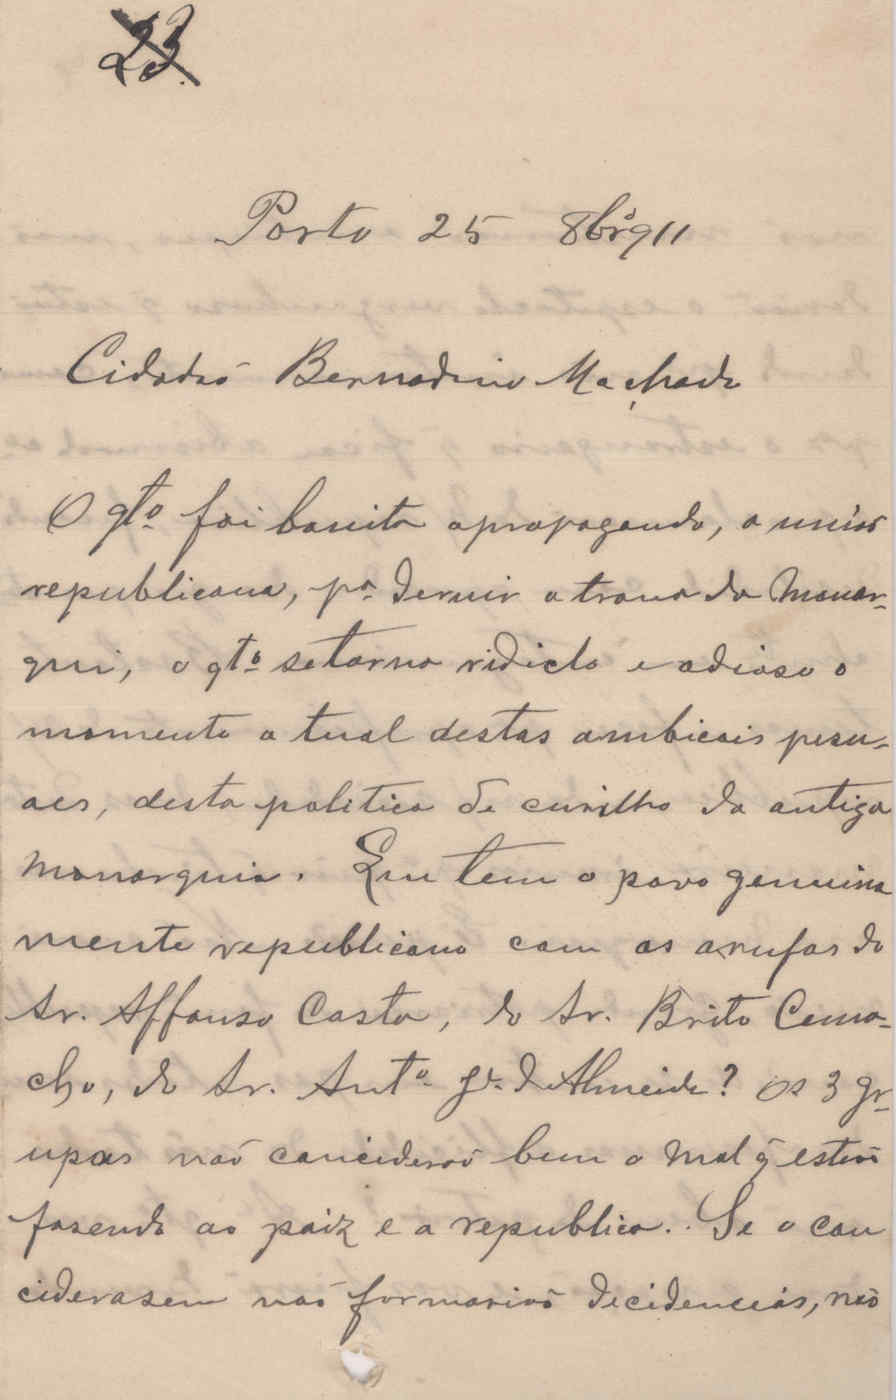 23.
Porto 25 8brº 911
Cidadaõ Bernadino Machado
O qtº foi bonita apropaganda, a uniaõ
republicana, pª deruir o trono da Monar-
qui, o qtº setorna ridiclo e odioso o
momento a tual destas ambicois pesu-
aes, desta politica de curilho da antiga
Monarquia. Qeu tem o povo genuina
mente republicano com as arufas do
Sr. Affonso Costa, do Sr. Brito Cama-
cho, do Sr. Antº Jé. d'Almeida? Os 3 gr-
upos naõ concideraõ bem o mal q̃ estaõ
fasendo ao paiz e a republica. Se o con
ciderasem naõ formariaõ decidencias, naõ